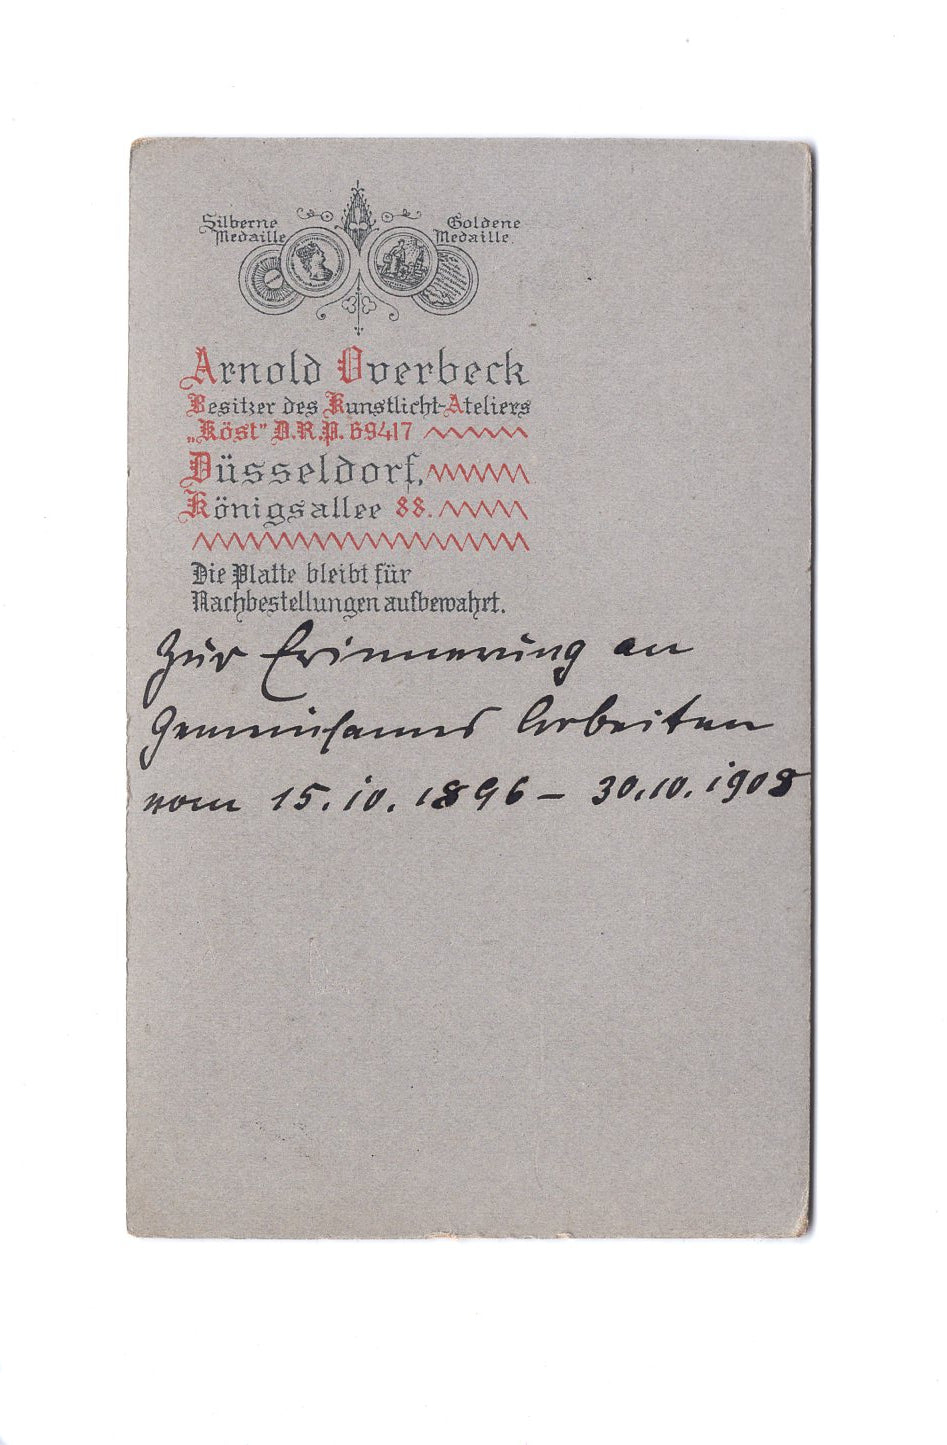 Silberne
Medaille
Goldene
Medaille
Arnold Overbeck
Besitzer des Kunstlicht-Ateliers
„Köst" D.R.P. 69417
Düsseldorf,
Königsallee 88.
Die Platte bleibt für
Nachbestellungen aufbewahrt.
Zur Erinnerung an
gemeinsames Arbeiten
vom 15.10.1896 – 30.10.1908